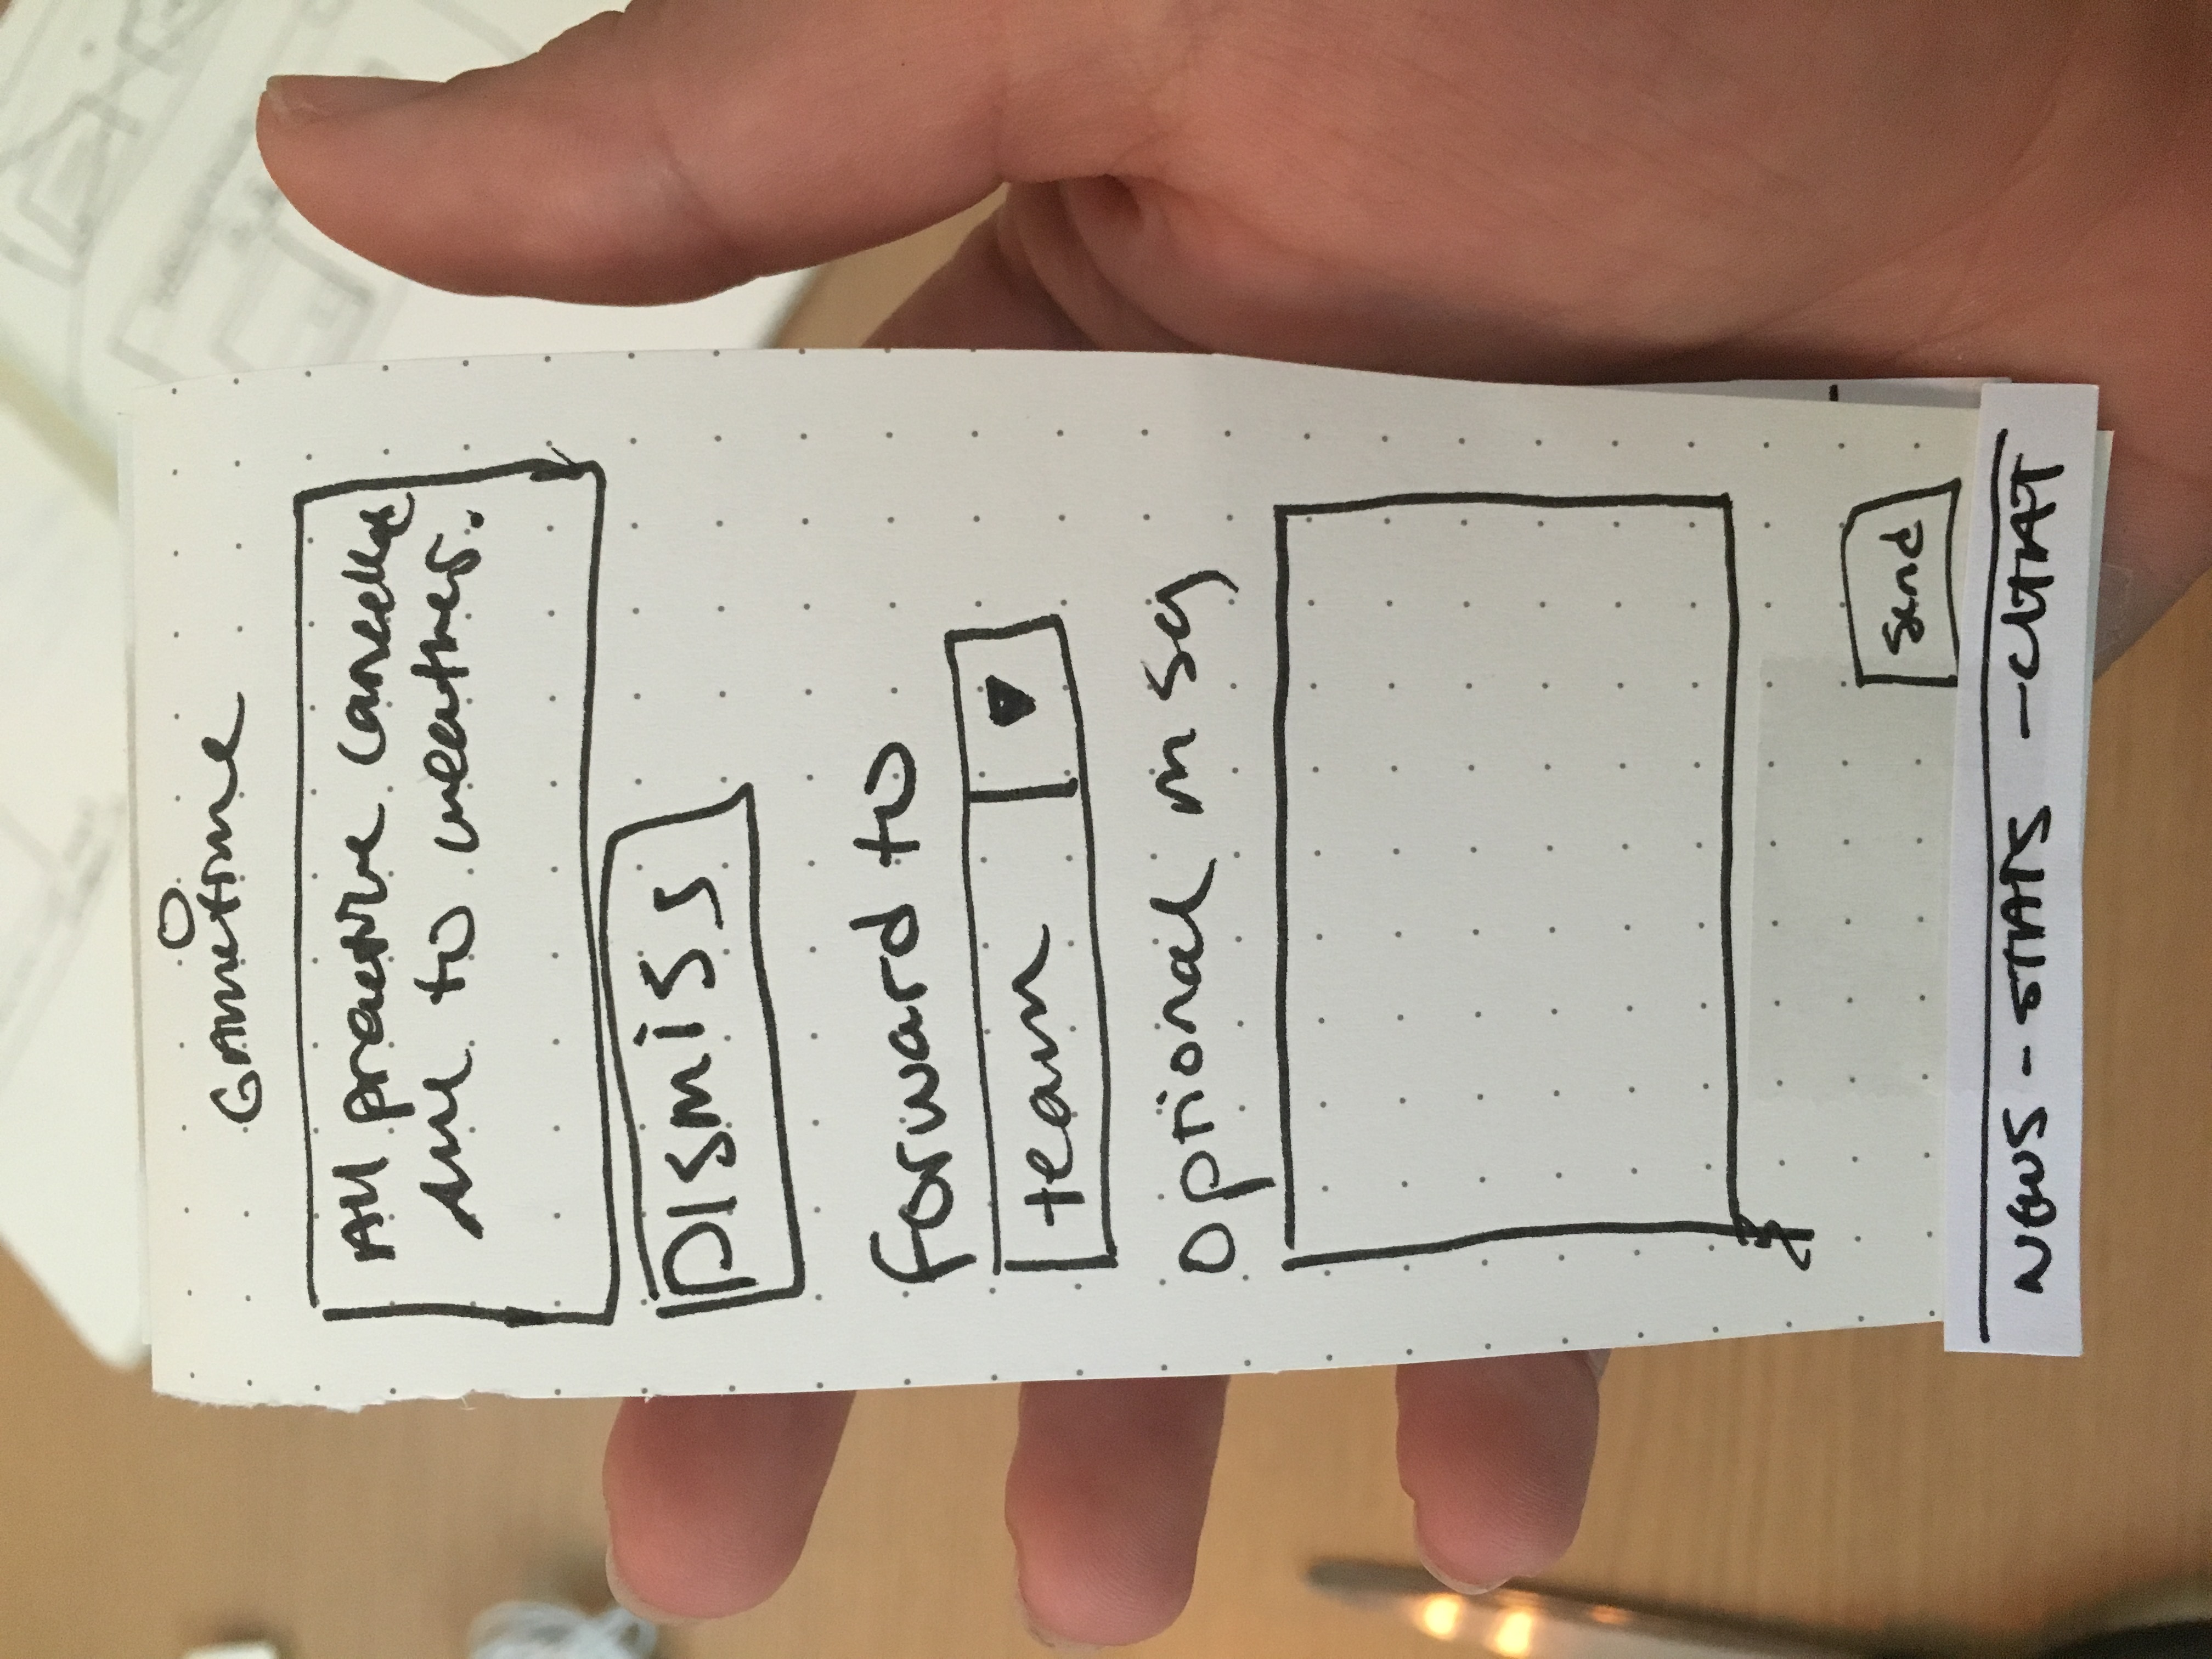 Gametime
All practice cancelled
due to weather.
Dismiss
forward to
team
optional msg
Send
NEWS - STATS - CHAT